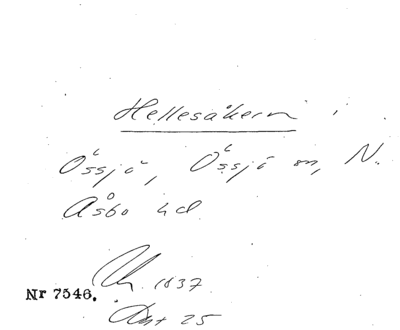 Hellesåkern
Össjö, Össjö sn, N.
Åsbo hd
1837
Nr 7546.
25